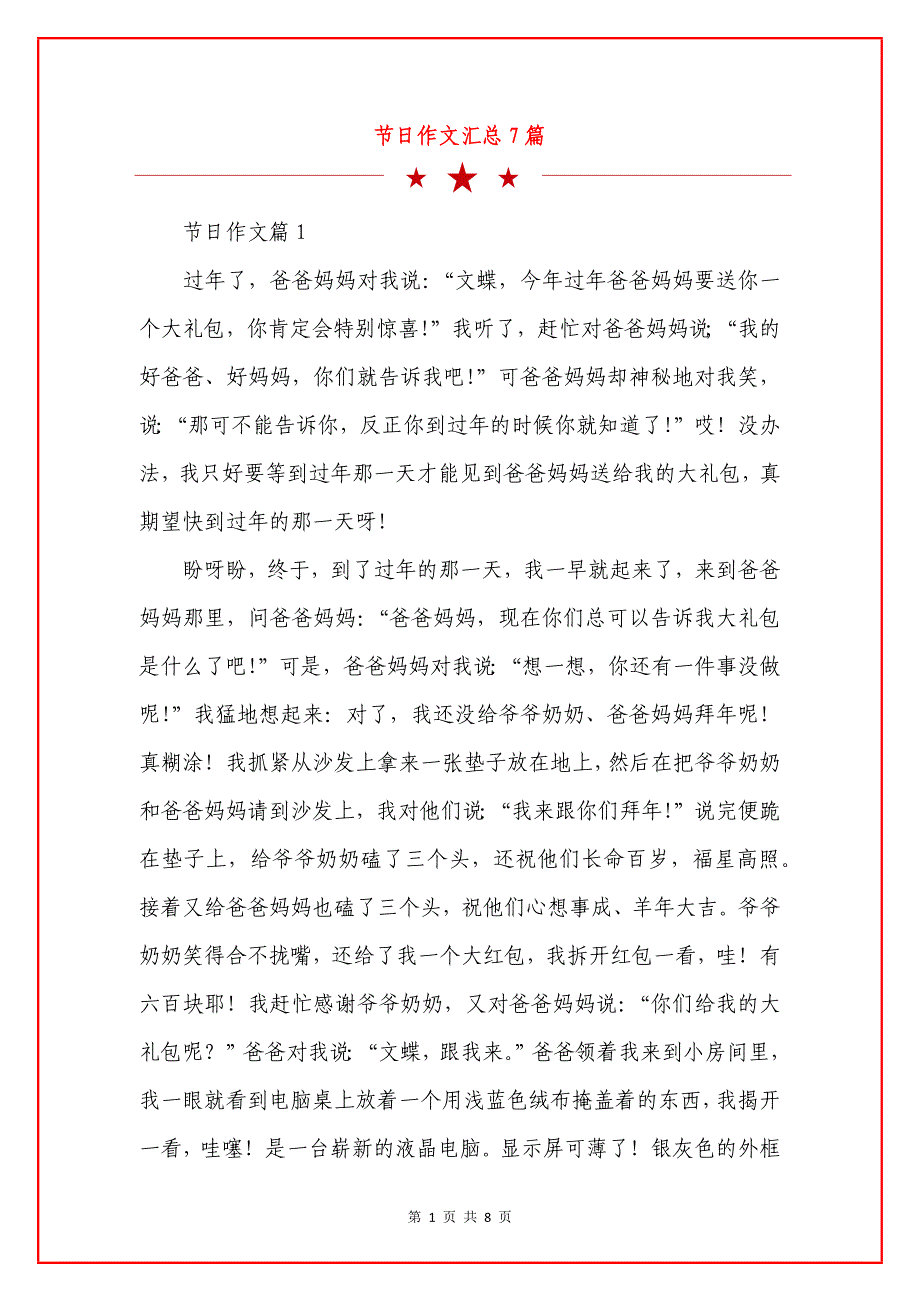 节日作文汇总 7 篇
节日作文篇 1
过年了，爸爸妈妈对我说：“文蝶，今年过年爸爸妈妈要送你一
个大礼包，你肯定会特别惊喜！”我听了，赶忙对爸爸妈妈说：“我的
好爸爸、好妈妈，你们就告诉我吧！”可爸爸妈妈却神秘地对我笑，
说：“那可不能告诉你，反正你到过年的时候你就知道了！”哎！没办
法，我只好要等到过年那一天才能见到爸爸妈妈送给我的大礼包，真
期望快到过年的那一天呀！
盼呀盼，终于，到了过年的那一天，我一早就起来了，来到爸爸
妈妈那里，问爸爸妈妈：“爸爸妈妈，现在你们总可以告诉我大礼包
是什么了吧！”可是，爸爸妈妈对我说：“想一想，你还有一件事没做
呢！”我猛地想起来：对了，我还没给爷爷奶奶、爸爸妈妈拜年呢！
真糊涂！我抓紧从沙发上拿来一张垫子放在地上，然后在把爷爷奶奶
和爸爸妈妈请到沙发上，我对他们说：“我来跟你们拜年！”说完便跪
在垫子上，给爷爷奶奶磕了三个头，还祝他们长命百岁，福星高照。
接着又给爸爸妈妈也磕了三个头，祝他们心想事成、羊年大吉。爷爷
奶奶笑得合不拢嘴，还给了我一个大红包，我拆开红包一看，哇！有
六百块耶！我赶忙感谢爷爷奶奶，又对爸爸妈妈说：“你们给我的大
礼包呢？”爸爸对我说：“文蝶，跟我来。”爸爸领着我来到小房间里，
我一眼就看到电脑桌上放着一个用浅蓝色绒布掩盖着的东西，我揭开
一看，哇噻！是一台崭新的液晶电脑。显示屏可薄了！银灰色的外框
第 1 页 共 8 页